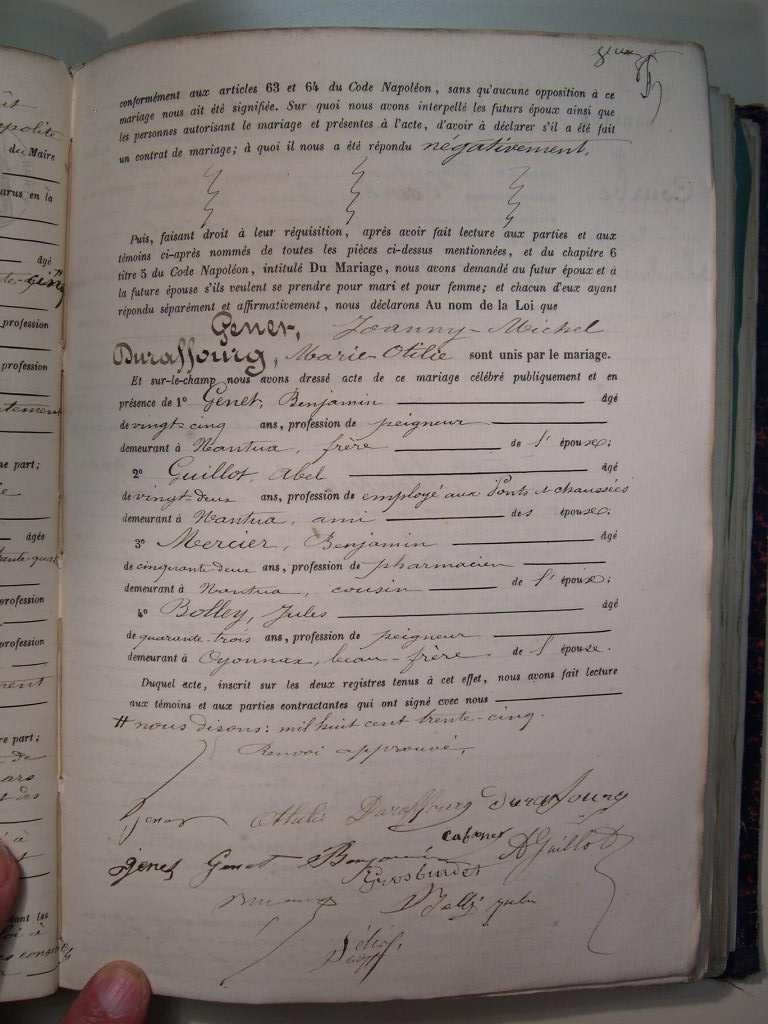 conformément aux articles 63 et 64 du Code Napoléon, sans qu'aucune opposition à ce
mariage nous ait été signifiée. Sur quoi nous avons interpellé les futurs époux ainsi que
les personnes autorisant le mariage et présentes à l'acte, d'avoir à déclarer s'il a été fait
un contrat de mariage; à quoi il nous a été répondu négativement.
Puis, faisant droit à leur réquisition, après avoir fait lecture aux parties et aux
témoins ci-après nommés de toutes les pièces ci-dessus mentionnées, et du chapitre 6
titre 5 du Code Napoléon, intitulé Du Mariage, nous avons demandé au futur époux et à
la future épouse s'ils veulent se prendre pour mari et pour femme; et chacun d'eux ayant
répondu séparément et affirmativement, nous déclarons Au nom de la Loi que
Genet, Joanny-Michel
Duraffourg, Marie-Otilie sont unis par le mariage.
Et sur-le-champ nous avons dressé acte de ce mariage célébré publiquement et en
présence de 1º Genet, Benjamin âgé
de vingt-cinq ans, profession de peigneur
demeurant à Nantua, frère de l'épouse;
2º Guillot, Abel âgé
de vingt-deux ans, profession de employé aux Ponts & chaussées
demeurant à Nantua, ami des épouse;
3º Mercier, Benjamin âgé
de cinquante-deux ans, profession de pharmacien
demeurant à Nantua, cousin de l'épouse;
4º Bolley, Jules âgé
de quarante-trois ans, profession de peigneur
demeurant à Oyonnax, beau-frère de l'épouse.
Duquel acte, inscrit sur les deux registres tenus à cet effet, nous avons fait lecture
aux témoins et aux parties contractantes qui ont signé avec nous
# nous disons: mil huit cent trente-cinq.
Renvoi approuvé,
Genet Otilie Duraffourg Duraffourg
genet Genet Benjamin A Guillot
du Maire
arus en la
âgé
profession
profession
ne part;
âgée
profession
profession
re part;